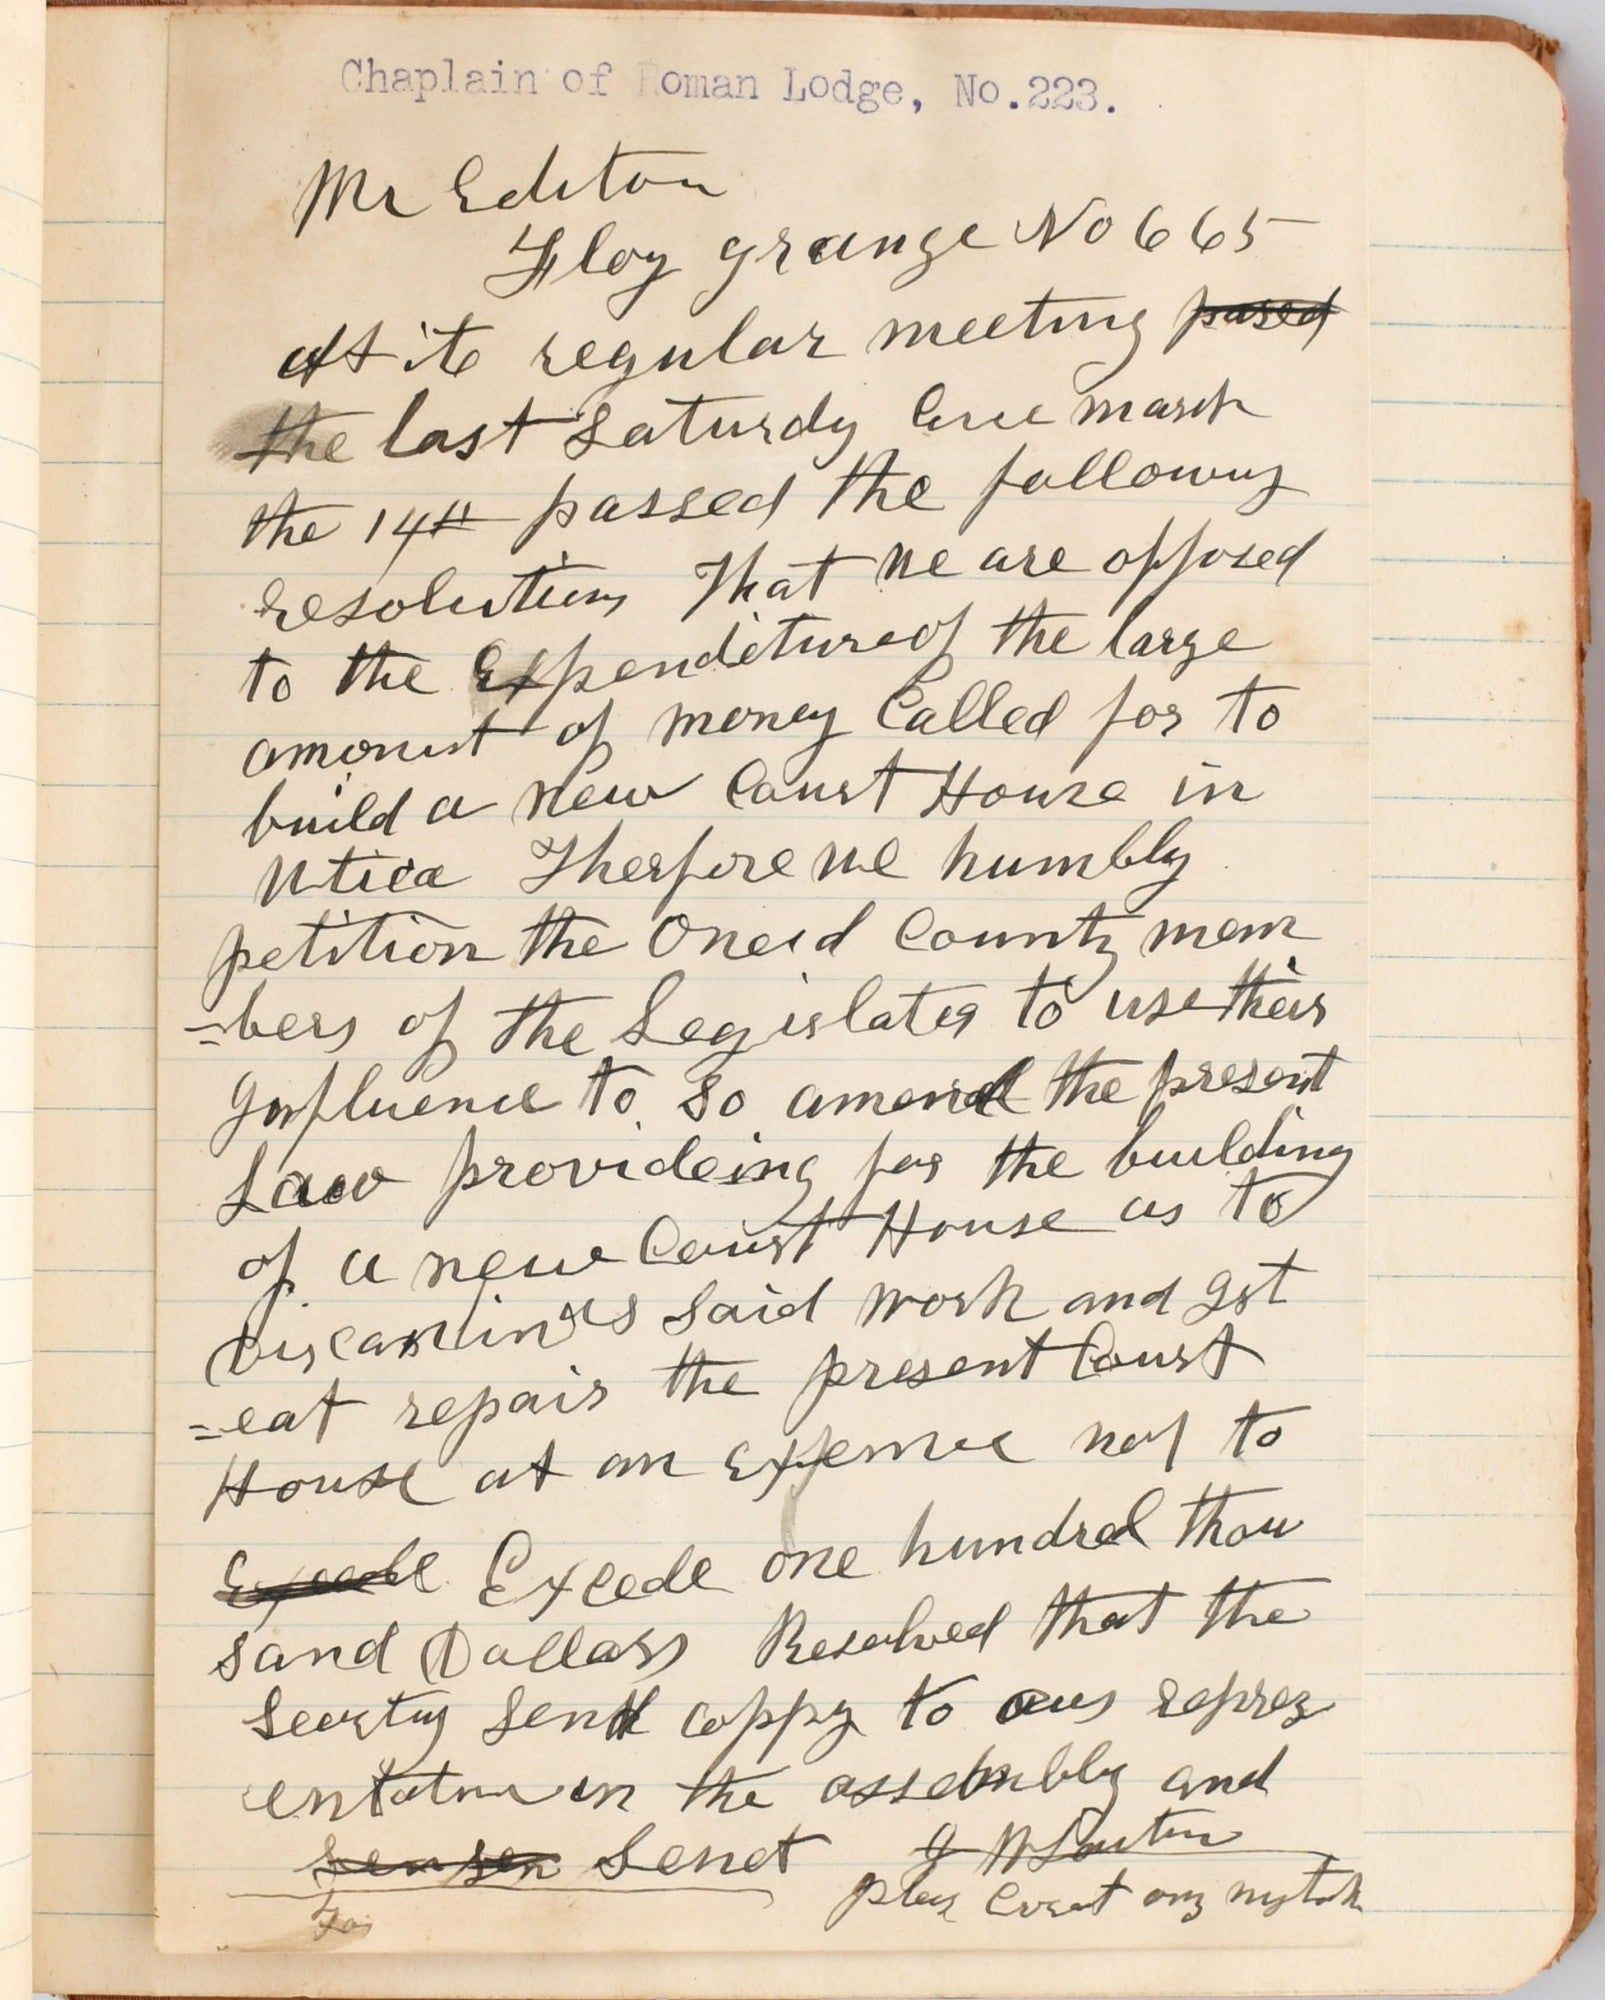 Chaplain of Roman Lodge, No.223.
Mr Editor
Floy grange No 665
At it regular meeting pased
the last Saturdy marsh
the 14th passed the following
resolution That we are opposed
to the Expenditure of the large
amount of money Called for to
build a new Court House in
Utica Therfore we humbly
petition the Oneid County mem
=bers of the Legislater to use their
Influence to so amend the present
Law provideing for the building
of a new Court House as to
said work and
=eat repair the present Court
House at an Expence not to
Excede Excede one hundred thou
sand Dollars Resolved that the
send coppy to our reprez
in the assembly and
Senet
any